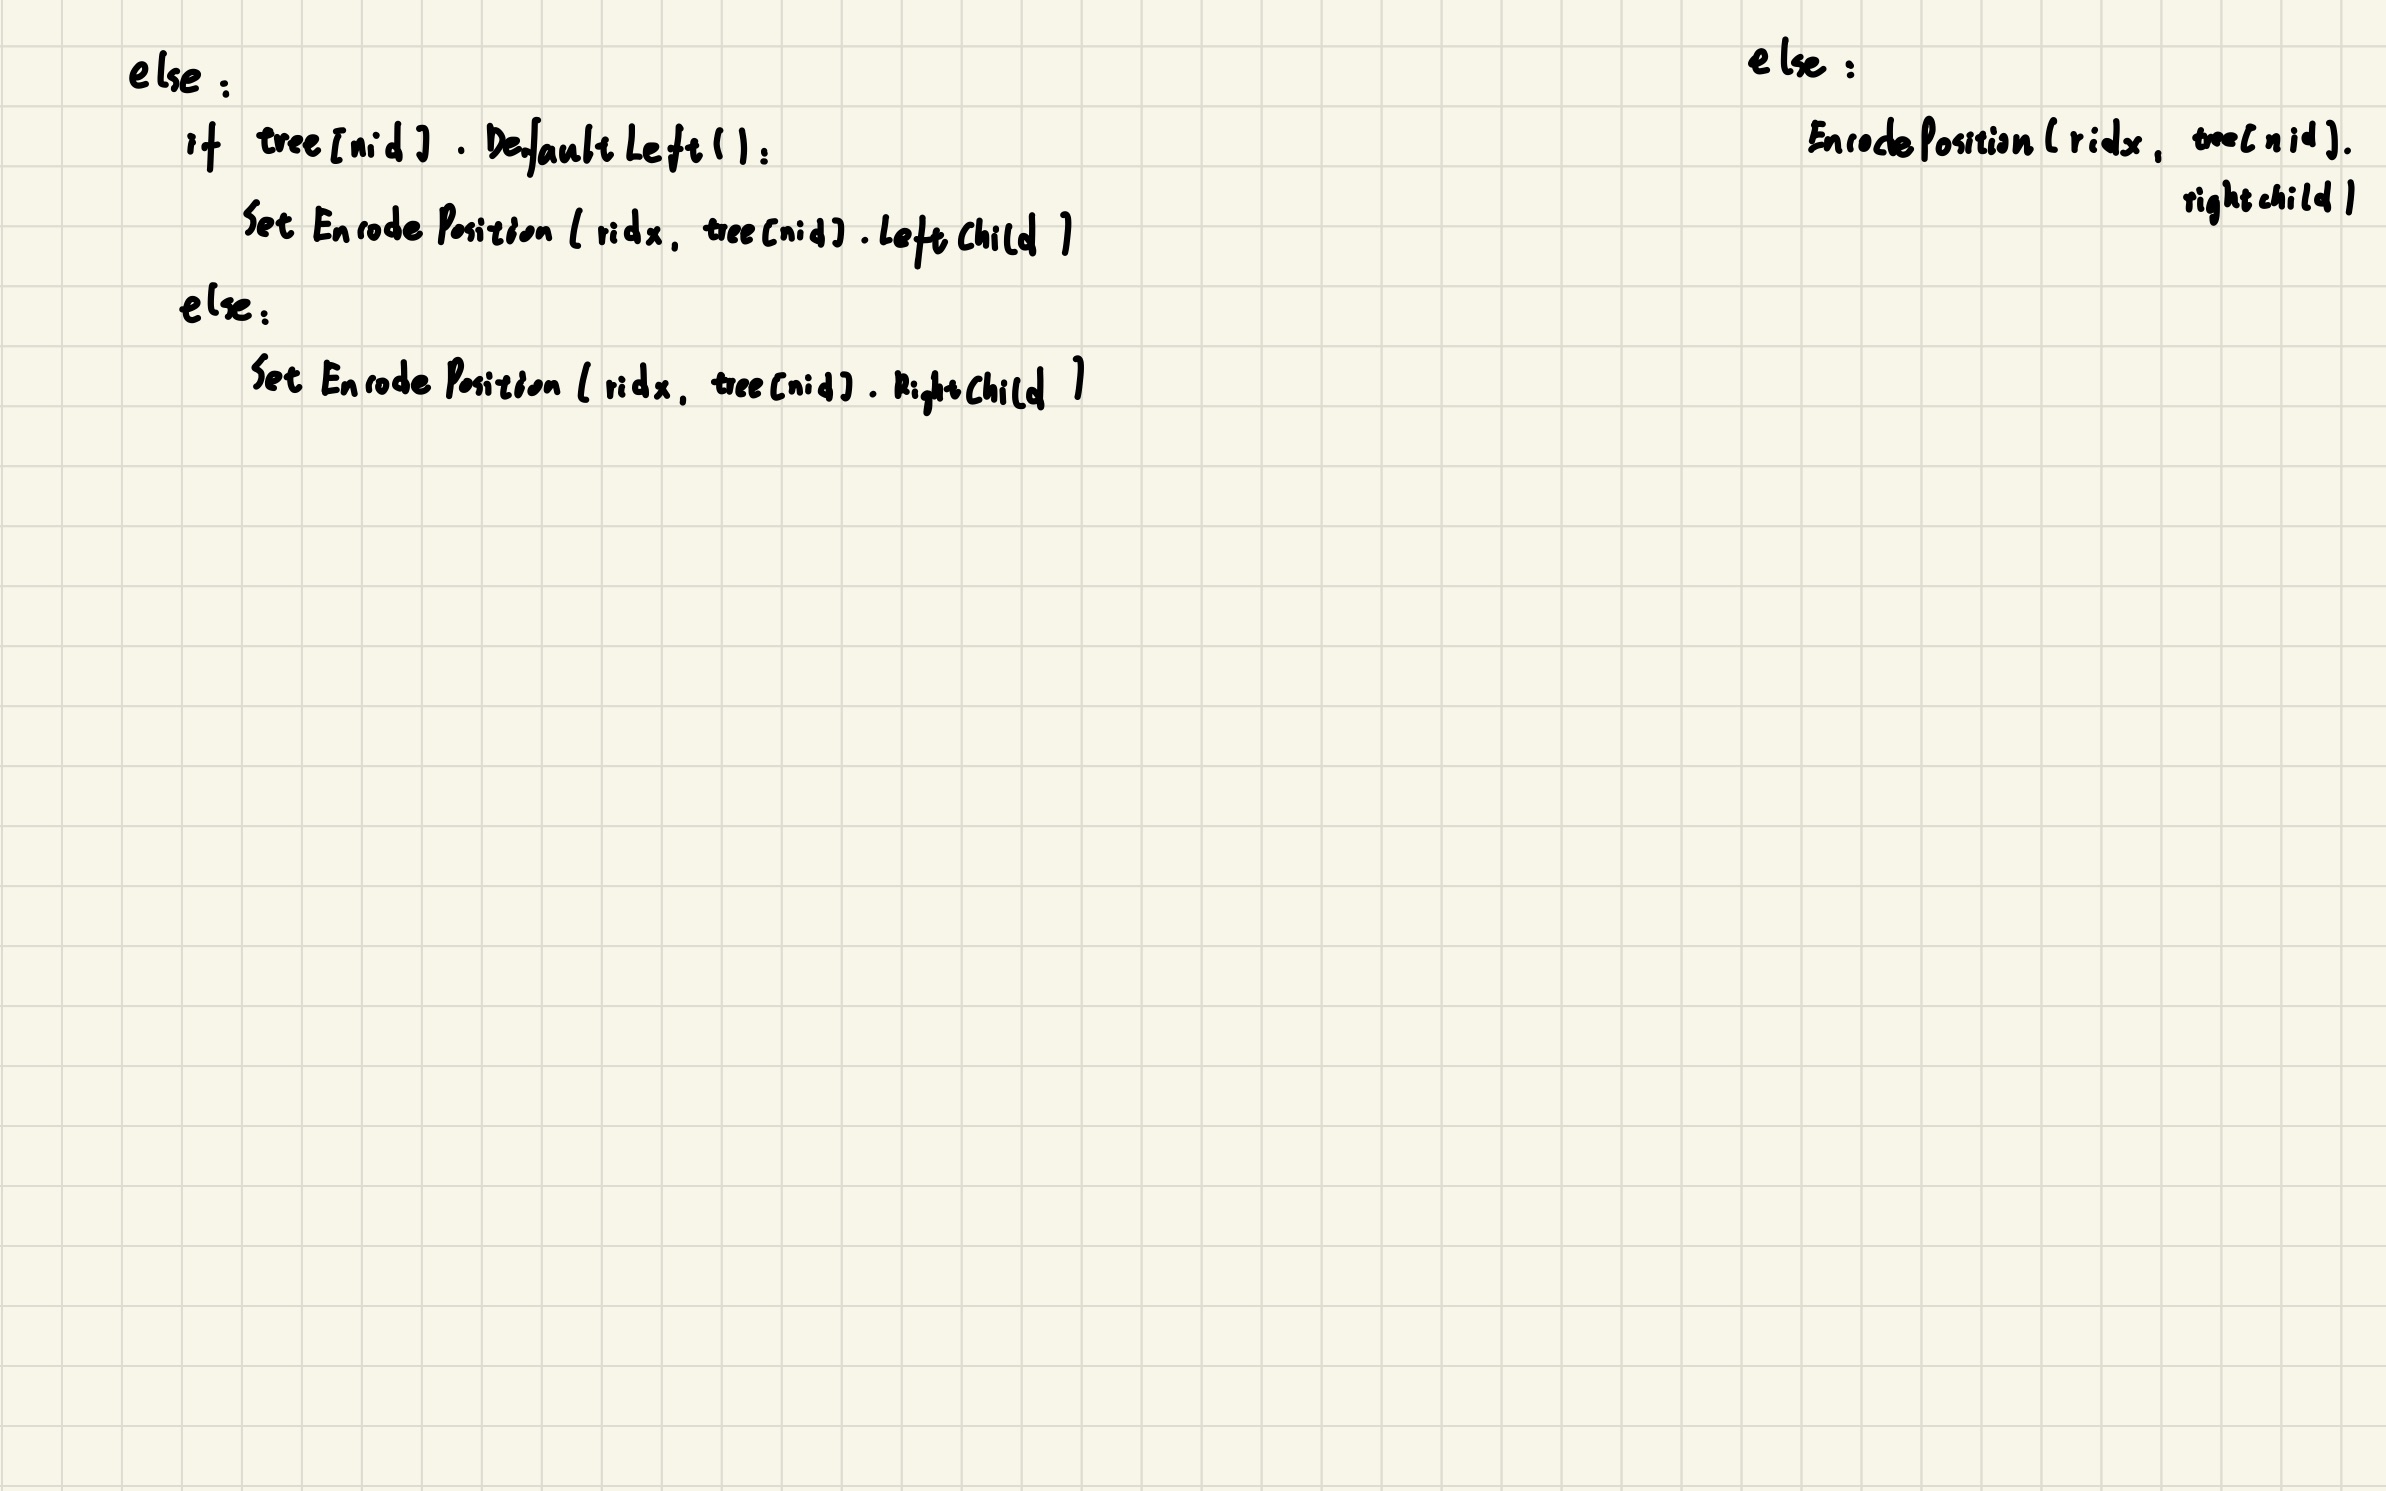 else :
if tree[nid] . DefaultLeft():
Set Encode Position ( ridx, tree[nid] . Left Child )
else:
Set Encode Position ( ridx, tree[nid] . Right Child )
else :
EncodePosition ( ridx, tree[nid].
rightchild )